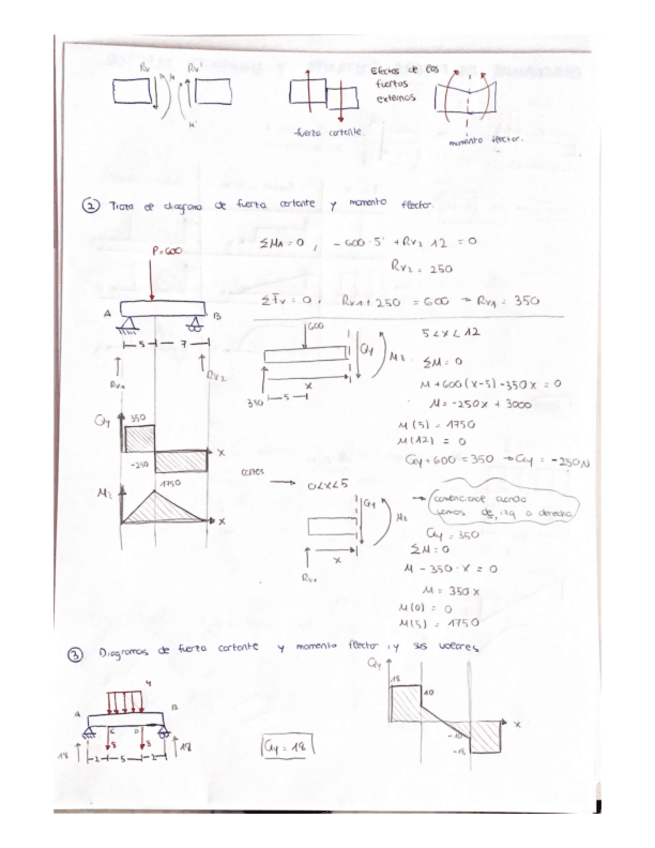 Rv M Rv'
M'
Efectos de las
fuerzas
externas
fuerza cortante.
momento flector.
② Traza el diagrama de fuerza cortante y momento flector.
P=600
A B
5 7
Rv₁ Rv₂
ΣM_A = 0 , -600·5 + Rv₂ 12 = 0
Rv₂ = 250
ΣFv = 0 , Rv₁ + 250 = 600 → Rv₁ = 350
600
Qy M₂
x
350 5
5 < x < 12
ΣM = 0
M + 600(x-5) - 350x = 0
M = -250x + 3000
M(5) = 1750
M(12) = 0
Qy + 600 = 350 → Qy = -250N
Qy 350
-250
x
1750
M₂
x
cortes → 0<x<5
Qy M₂
x
Rv₁
→ cuando
vamos de izq a derecha
Qy = 350
ΣM = 0
M - 350·x = 0
M = 350x
M(0) = 0
M(5) = 1750
③ Diagramas de fuerza cortante y momento flector, y sus valores
4
A B
C D
18 8 8 18
2 5 2
Qy = 18
Qy
18
10
x
-10
-18